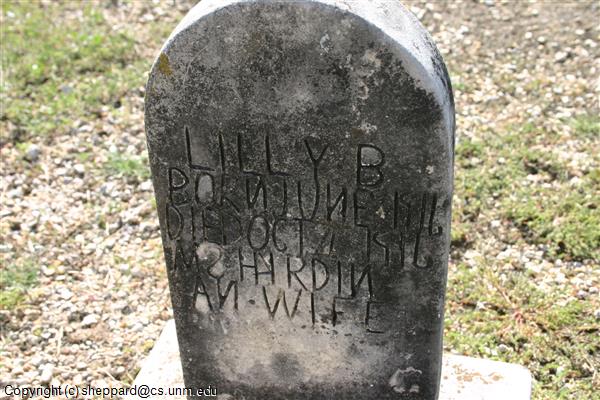 LILLY B
BORN JUNE
DIED OCT 1916
HARDIN
AN WIFE
Copyright (c) sheppard@cs.unm.edu